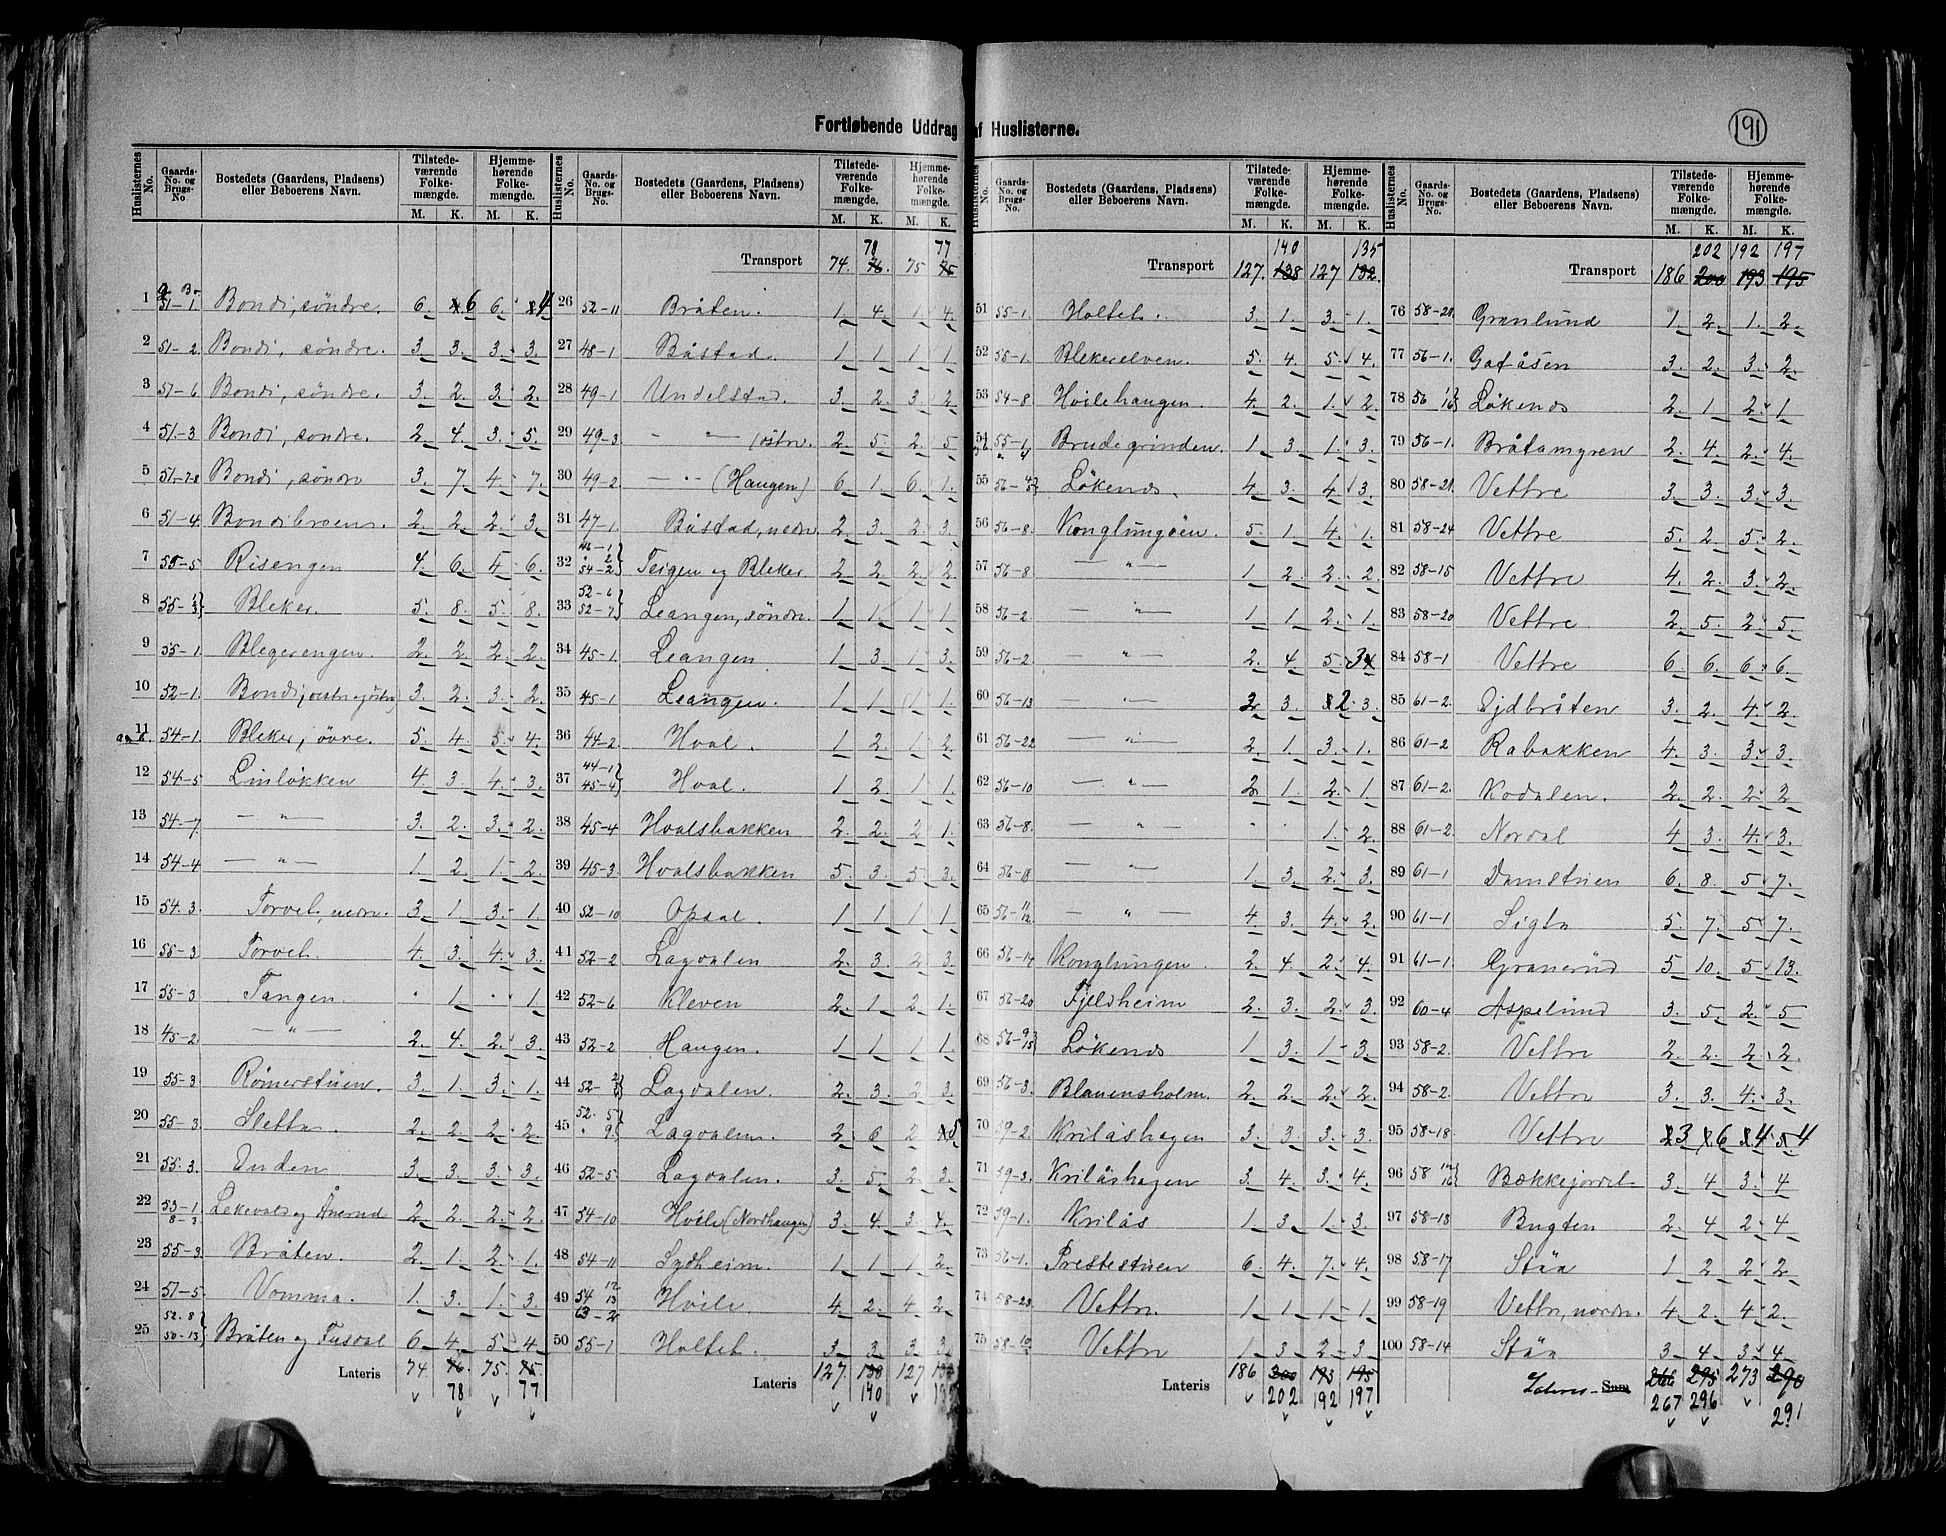 Fortløbende Uddrag af Huslisterne.
191
Huslisternes No. Gaards-No. og Brugs-No Bostedets (Gaardens, Pladsens) eller Beboerens Navn. Tilstedeværende Folkemængde. M. K. Hjemmehørende Folkemængde. M. K.
1 51-1 Bondi, søndre. 6. 6 6. 4
2 51-2 Bondi, søndre. 3. 3. 3. 3.
3 51-6 Bondi, søndre. 3. 2. 3. 2.
4 51-3 Bondi, søndre. 2. 4. 3. 5.
5 51-7-8 Bondi, søndre 3. 7. 4. 7.
6 51-4. Bondibroen. 2. 2. 2. 3.
7 55-5 Risengen 4. 6. 5. 6.
8 55- Bleker. 5. 8. 5. 8.
9 55-1 Blegerengen. 2. 2. 2. 2.
10 52-1. Bondi, 3. 2. 3. 2.
11 54-1. Bleker, øvre. 5. 4. 5. 4.
12 54-5 Linløkken 4. 3. 4. 3.
13 54-7 — " — 3. 2. 3. 2.
14 54-4 — " — 1. 2. 1. 2.
15 54.3 Torvet, nedre. 3. 1. 3. 1.
16 55-3 Torvet. 4. 3. 4. 3.
17 55-3 Tangen. . 1. . 1.
18 45-2 — " — 2. 4. 2. 3.
19 55-3 Rømerstuen. 3. 1. 3. 1.
20 55-3 Sletta. 2. 2. 2. 2.
21 55.3 Enden 3. 3. 3. 3.
22 53-1 8-3 og Åserud 2. 2. 2. 2.
23 55-3. Bråten. 2. 1. 2. 1.
24 51-5 Vomma. 1. 3. 1. 3.
25 52.8 50-13 Bråten og Fusdal 6 4. 5. 4.
Lateris 74 76 75. 75
78 77
Huslisternes No. Gaards-No. og Brugs-No. Bostedets (Gaardens, Pladsens) eller Beboerens Navn. Tilstedeværende Folkemængde. M. K. Hjemmehørende Folkemængde. M. K.
78 77
Transport 74. 76. 75 75
26 52-11 Bråten. 1. 4. 1. 4.
27 48-1 Båstad. 1 1 1 1
28 49-1 Undelstad. 3. 2 3 2
29 49-3 — " — (østre. 2. 5. 2. 5
30 49-2 — " — (Haugen) 6. 1. 6. 1.
31 47-1. Båstad, nedre. 2. 3. 2. 3.
32 46-1 " 2 54-2 Teigen og Bleker. 2. 2. 2. 2.
33 52-6 52-7 Leangen, søndre. 1 1. 1 1
34 45-1. Leangen 1. 3. 1 3.
35 45-1. Leangen. 1 1 1 1.
36 44-2. Hval. 1 2. 1 2.
37 44-1 45-4 Hval. 1 2. 1 1.
38 45-4 Hvalsbakken 2. 2. 2 1.
39 45-3. Hvalsbakken 5. 3. 5 3.
40 52-10 Opsal. 1 1 1 1
41 52-2 Lagdalen 2. 3. 2 3.
42 52-6 Kleven 2. 1 2 1.
43 52-2 Haugen. 1 1 1 1.
44 52- Lagdalen. 2. 3 2 3.
45 52. 5 " 9. Lagdalen. 2 6 2 5
46 52-5. Lagdalen. 3. 5. 2 3.
47 54-10 Hvile (Nordhaugen) 3. 4. 3 4.
48 54-11 Sydheim. 1 1 1 2.
49 54 12 13 63-2 Hvile 4. 2. 4 2.
50 55-1 Holtet. 3. 3 3 3.
Lateris 127. 138 127
140
Huslisternes No. Gaards-No. og Brugs-No. Bostedets (Gaardens, Pladsens) eller Beboerens Navn. Tilstedeværende Folkemængde. M. K. Hjemmehørende Folkemængde. M. K.
140 135
Transport 127. 138 127 132.
51 55-1. Holtet. 3. 1. 3. 1.
52 55-1. Blekerelven. 5. 4 5. 4.
53 54-8 Hvilehaugen. 4. 2. 1. 2.
54 55-1 " 4 Brudegrinden. 1 3. 1. 3.
55 56- Løkenes. 4. 3. 4. 3.
56 56-8. Konglungøen. 5. 1. 4. 1.
57 56-8 — " — 1. 2. 2. 2.
58 56-2 — " — 1 1 2. 1.
59 56-2. — " — 2. 4. 5. 3
60 56-13 " — 3. 2 3.
61 56-22 — " — 2. 1. 3. 1.
62 56-10 — " — 2. 1. 2. 1
63 56-8. — " — . . 1. 2.
64 56-18 — " — 1. 3. 2. 3.
65 56-11 12 — " — 4. 3. 4. 2.
66 56-14 Konglungen. 2. 4. 2. 4.
67 56-20 Fjeldheim 2. 3. 2. 3.
68 56-9 15 Løkenes 1 3. 1 3.
69 56-3. Blauensholm. 2. 2. 2. 2.
70 59-2. Krilåshagen 3. 3. 3. 3.
71 59-3. Krilåshagen 3. 4. 3. 4.
72 59-1. Krilås 1. 3. 1. 3.
73 56-1. Prestestuen 6. 4. 7. 4.
74 58-23. Vettre. 1 1 1 1
75 58-10 Vettre 1 3 2 3
Lateris 186 200 193 195
202 192 197
Huslisternes No. Gaards-No. og Brugs-No. Bostedets (Gaardens, Pladsens) eller Beboerens Navn. Tilstedeværende Folkemængde. M. K. Hjemmehørende Folkemængde. M. K.
202 192 197
Transport 186 200 193 195
76 58-21. Granlund 1. 2. 1. 2.
77 56-1. Gaasåsen 3. 2. 3. 2.
78 56 1 16 Løkenes 2. 1 2. 1
79 56-1. Bråtamyren 2. 4. 2. 4.
80 58-21. Vettre 3. 3. 3. 3.
81 58-24 Vettre 5. 2. 5. 2.
82 58-15 Vettre 4. 2. 3. 2.
83 58-20 Vettre. 2. 5. 2. 5.
84 58-1 Vettre 6. 6. 6. 6.
85 61-2. Ejdbråten 3. 2. 4. 2.
86 61-2 Rabakken 4. 3. 3. 3.
87 61-2. Kodalen. 2. 2. 2. 2
88 61-2 Nordal 4 3. 4. 3.
89 61-1 Damstuen 6. 8. 5. 7.
90 61-1. Sigta 5. 7. 5 7.
91 61-1. Granerud 5. 10. 5. 13.
92 60-4 Aspelund 3. 5. 2. 5
93 58-2. Vettre 2. 2. 2. 2.
94 58-2. Vettre 3. 3. 4. 3.
95 58-18. Vettre 3 6 4 4
96 58 16 Bækkejordet 3. 4 3. 4
97 58-13 Bugten 2. 4 2. 4
98 58-17 Ståa 1 2 2. 2.
99 58-19 Vettre, nordre. 4. 2. 4 2.
100 58-14 Ståa 3 4 3. 4.
Lateris Sum 266 295 273 290
267 296 291